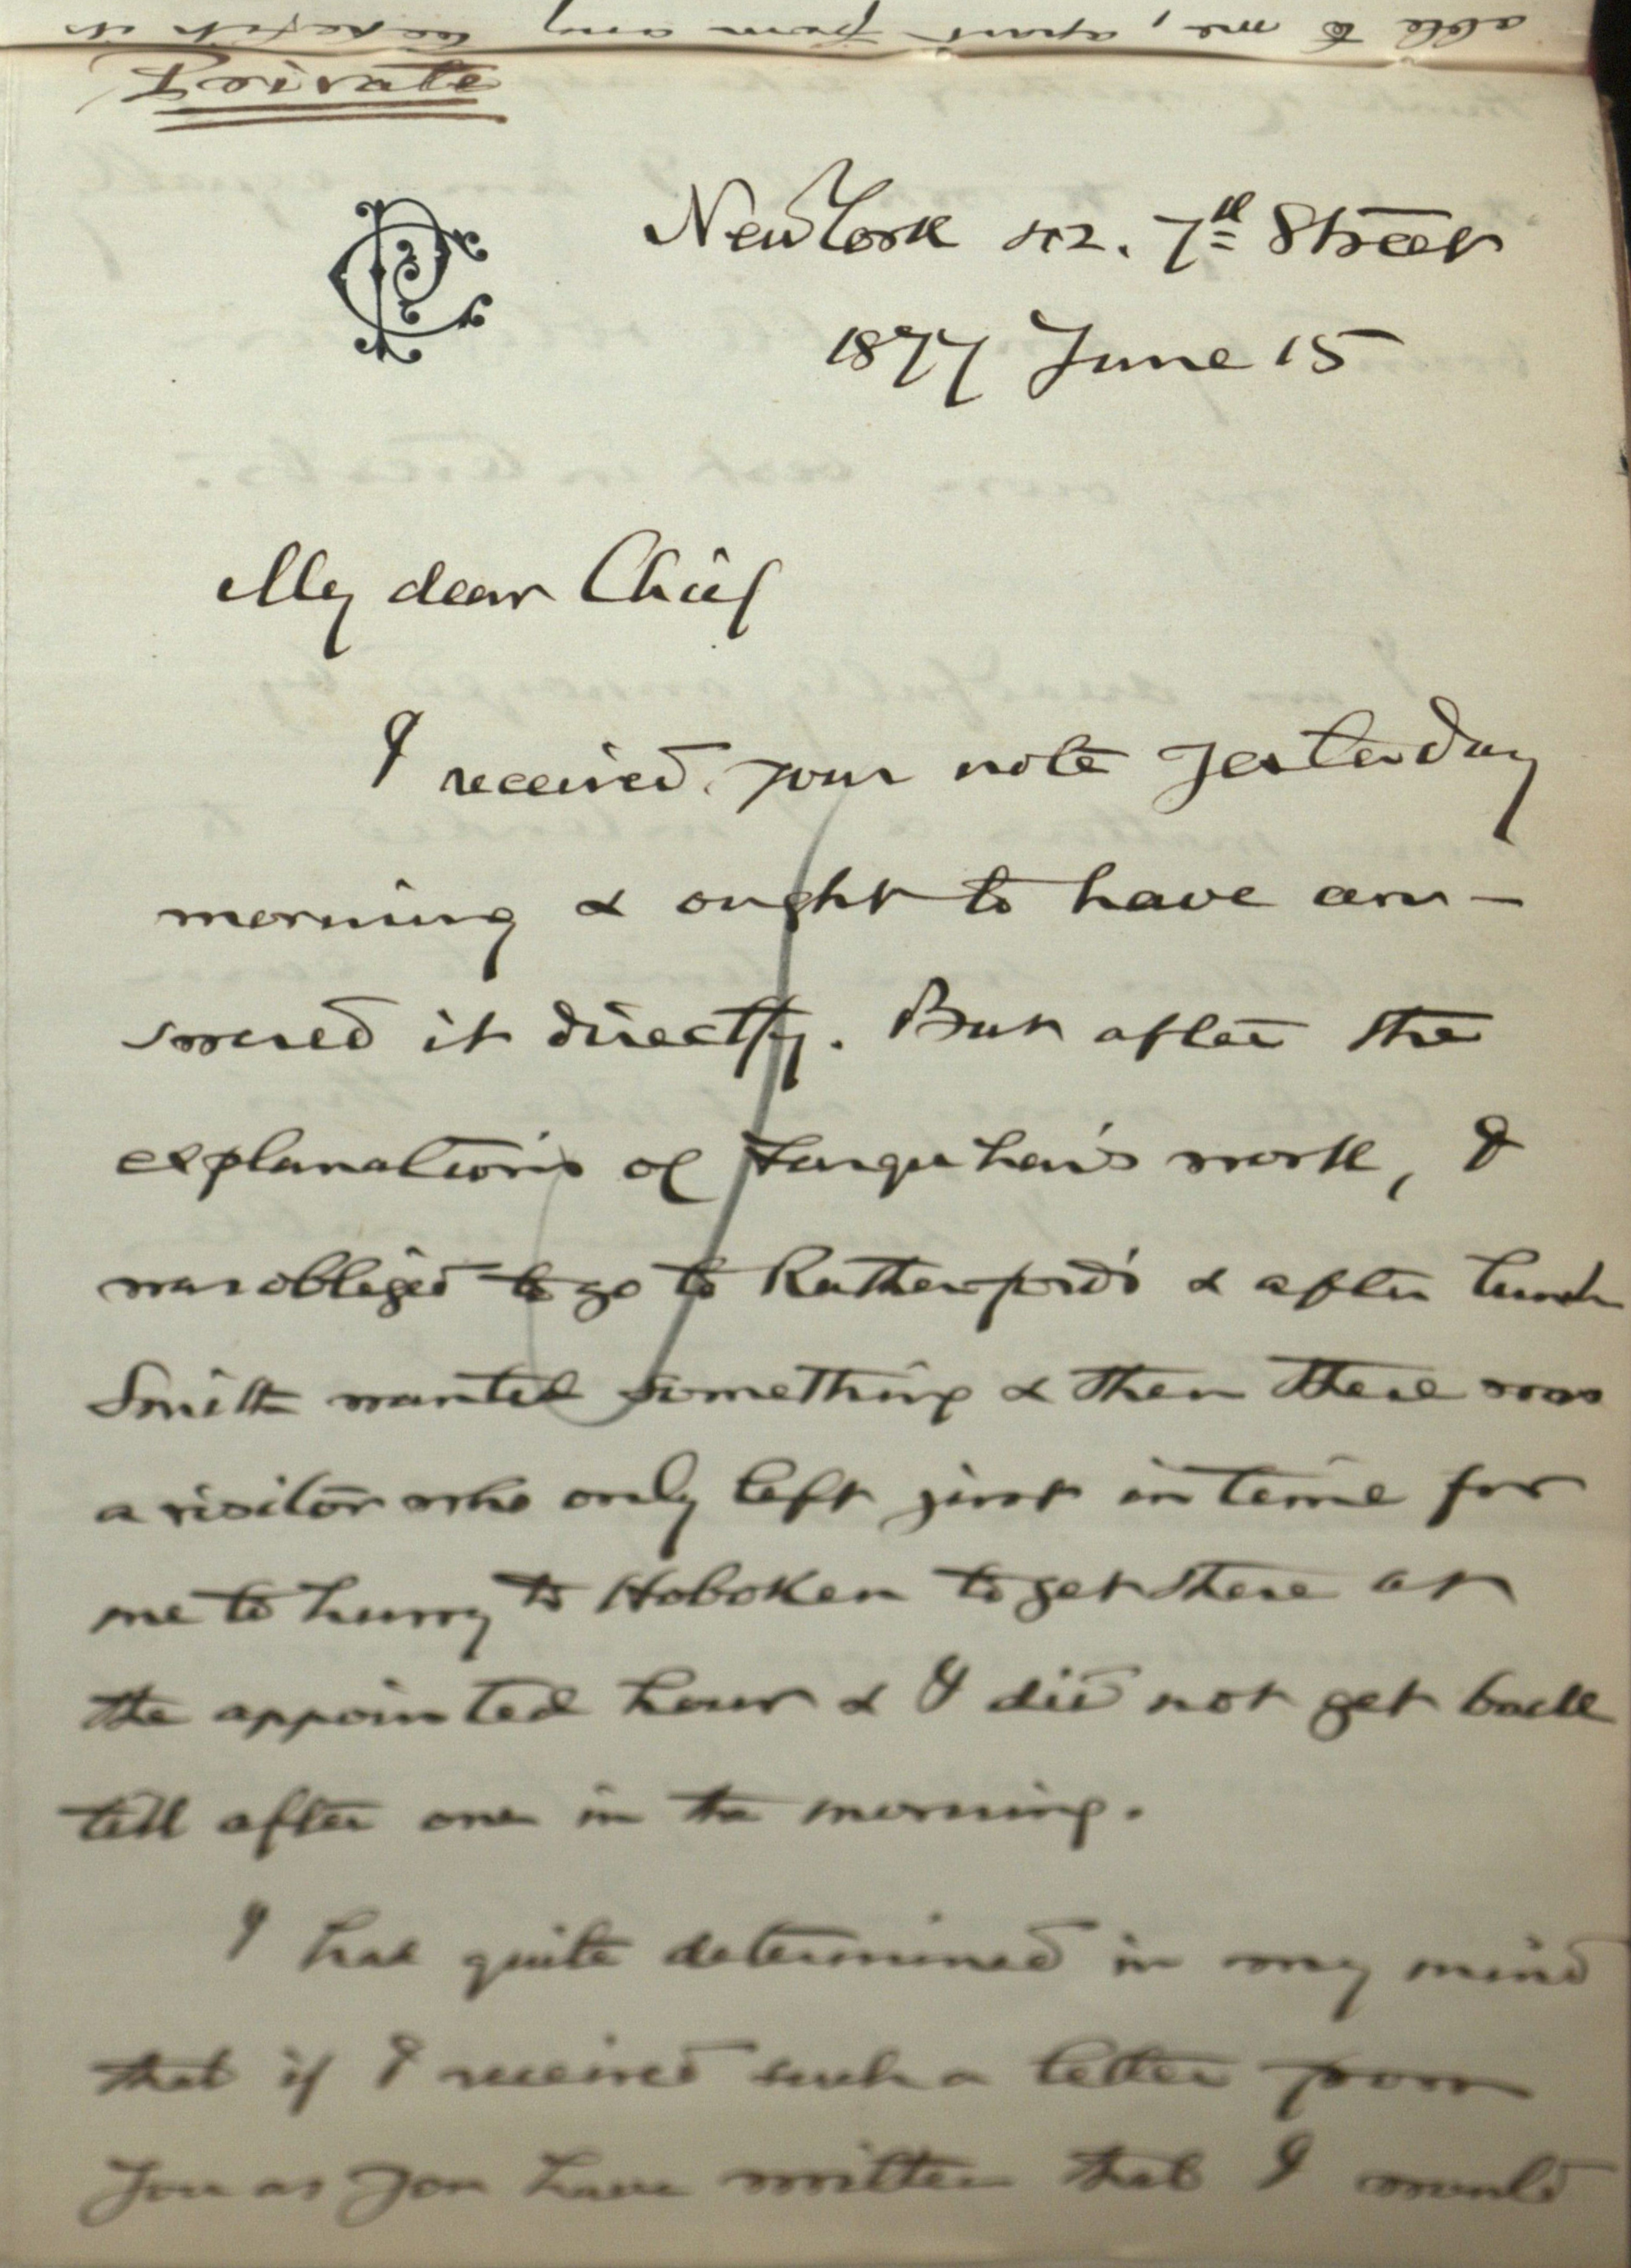 able to me, apart from any benefit it
Private
CP
New York 42. 7th Street
1877 June 15
My dear Chief
I received your note yesterday
morning & ought to have an-
swered it directly. But after the
explanations of Farquhar's work, I
was obliged to go to Rutherfurd's & after lunch
Smith wanted something & then there was
a visitor who only left just in time for
me to hurry to Hoboken to get there at
the appointed hour & I did not get back
till after one in the morning.
I had quite determined in my mind
that if I received such a letter from
you as you have written that I would